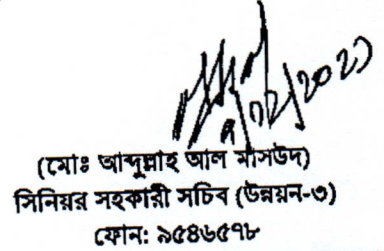 (মোঃ আব্দুল্লাহ আল মাসউদ)
সিনিয়র সহকারী সচিব (উন্নয়ন-৩)
ফোন: ৯৫৪৬৫৭৮